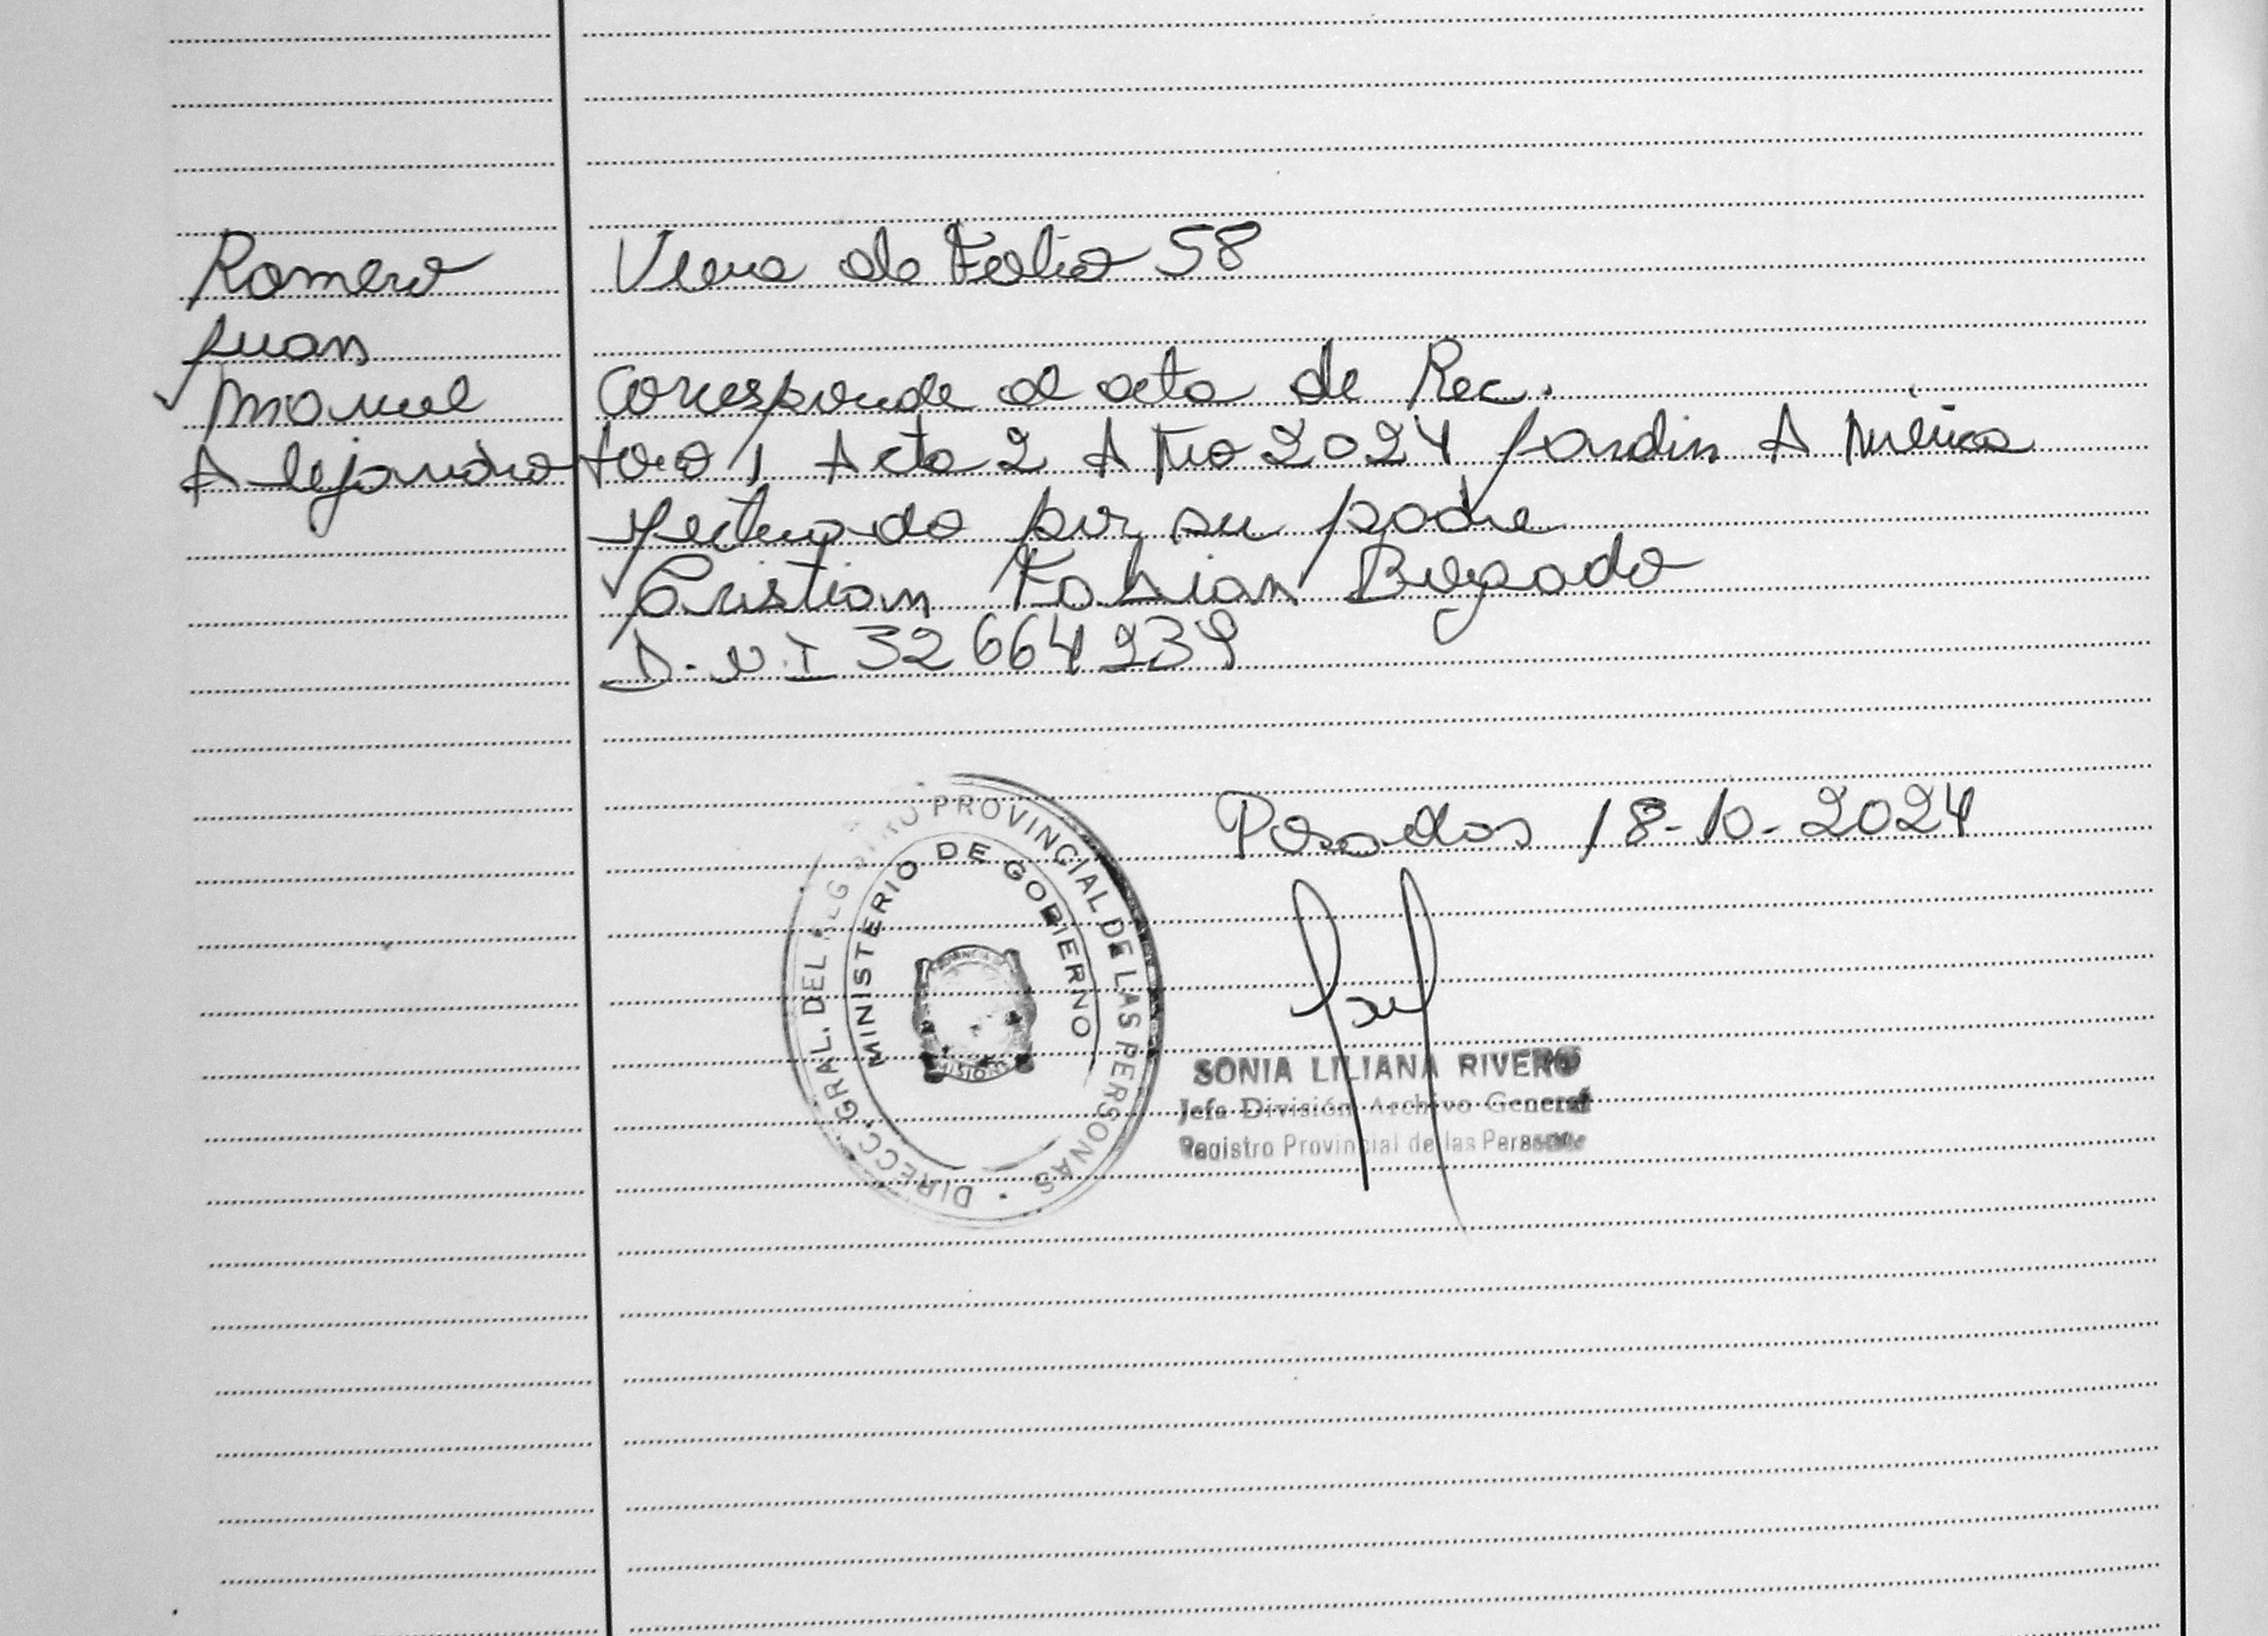 Romero
Juan
Manuel
Alejandro
Viene de Folio 58
Corresponde al acta de Rec.
tomo 1 Acta 2 Año 2024 Jardin America
efectuado por su padre
Cristian Fabian Bogado
D.N.I 32 664 939
Posadas 18-10-2024
DIRECC. GRAL. DEL REGISTRO PROVINCIAL DE LAS PERSONAS
MINISTERIO DE GOBIERNO
MISIONES
SONIA LILIANA RIVERO
Jefa División Archivo General
Registro Provincial de las Personas